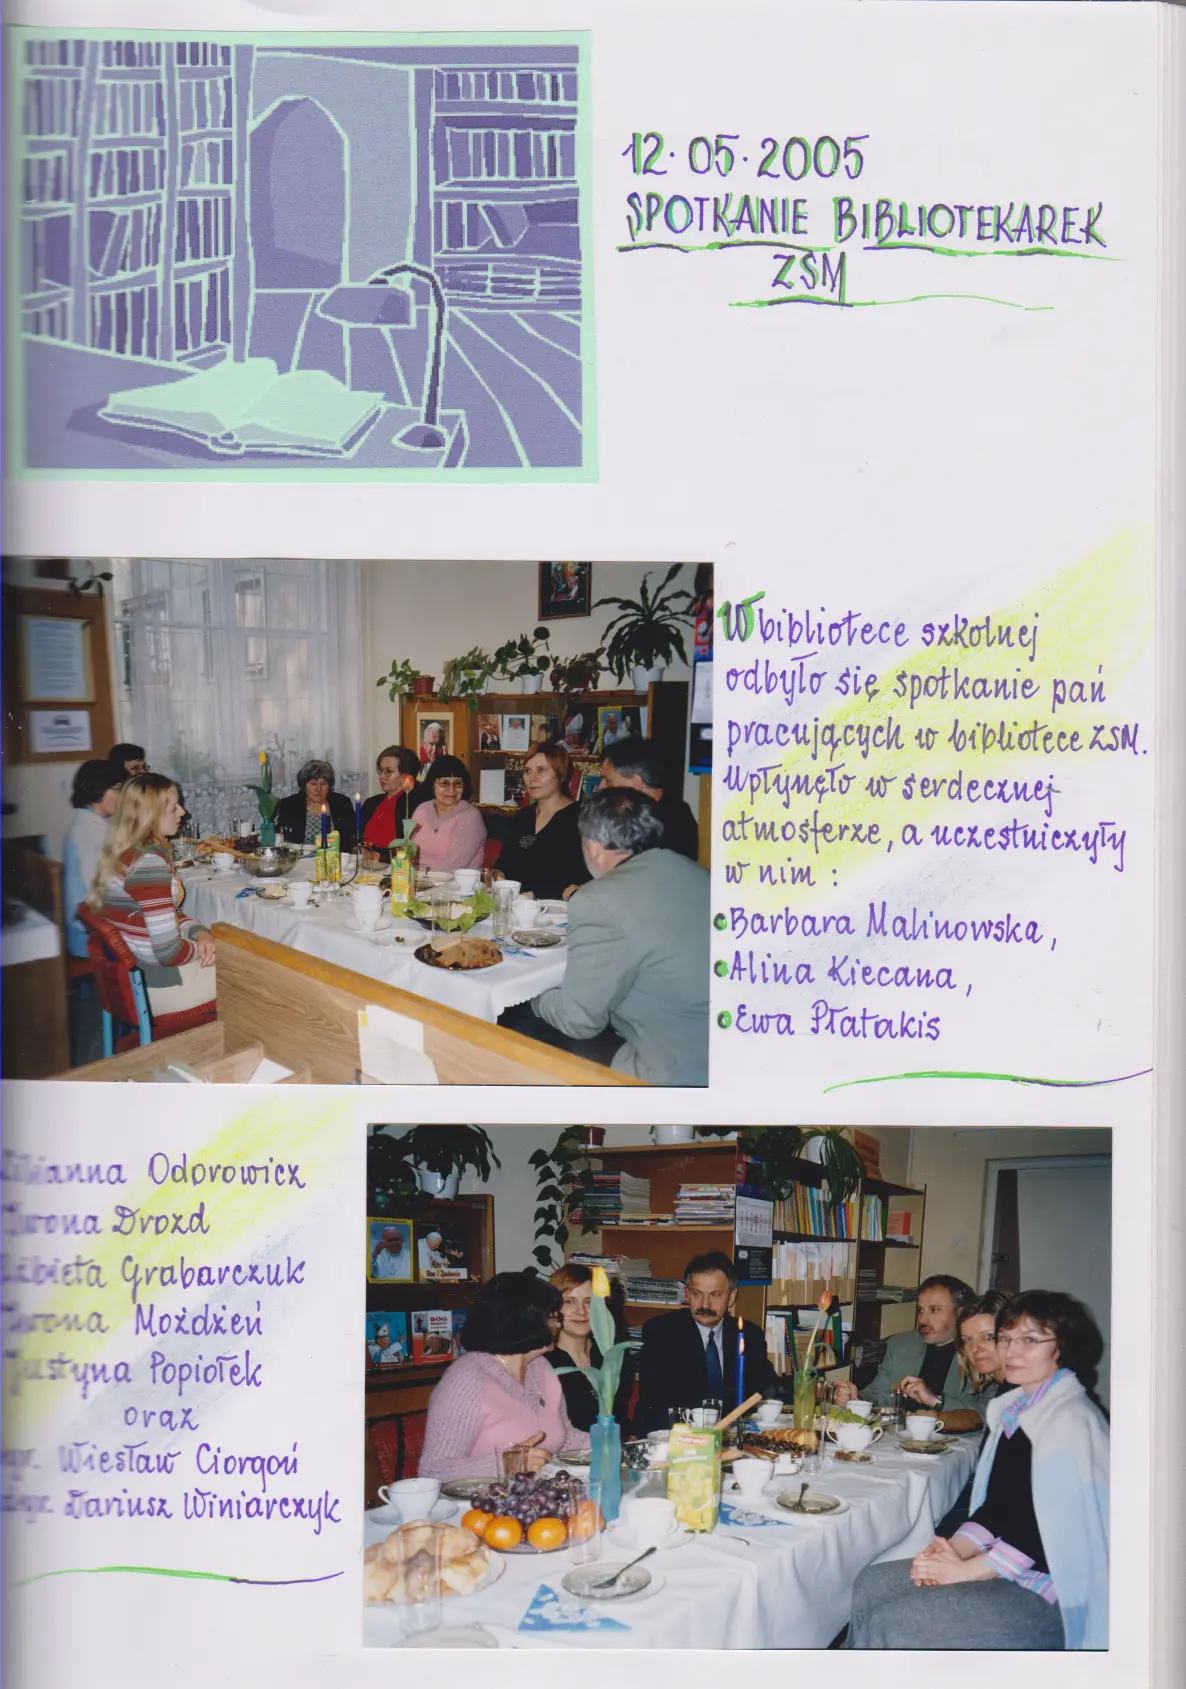 12.05.2005
SPOTKANIE BIBLIOTEKAREK
ZSM
W bibliotece szkolnej
odbyło się spotkanie pań
pracujących w bibliotece ZSM.
Upłynęło w serdecznej
atmosferze, a uczestniczyły
w nim :
Barbara Malinowska,
Alina Kiecana,
Ewa Płatakis
Odorowicz
Iwona Drozd
Elżbieta Grabarczuk
Iwona Możdżeń
Justyna Popiołek
oraz
Wiesław Ciorgoń
Dariusz Winiarczyk
BÓG